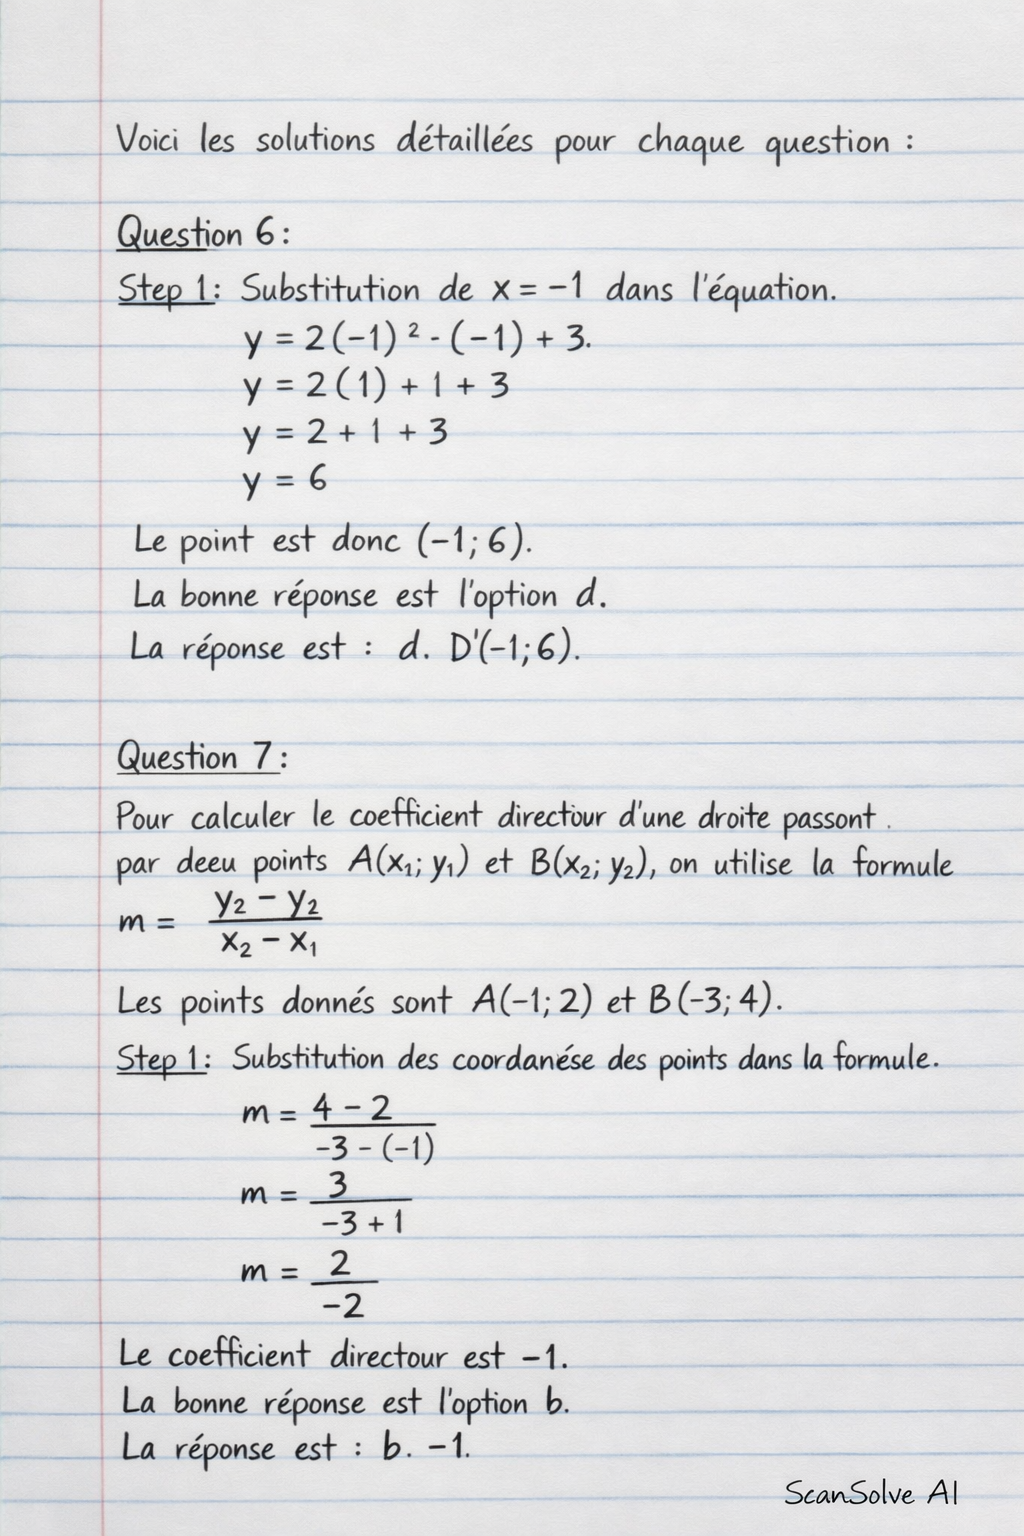 Voici les solutions détaillées pour chaque question :
Question 6:
Step 1: Substitution de x = -1 dans l'équation.
y = 2(-1)² - (-1) + 3.
y = 2(1) + 1 + 3
y = 2 + 1 + 3
y = 6
Le point est donc (-1; 6).
La bonne réponse est l'option d.
La réponse est : d. D'(-1; 6).
Question 7:
Pour calculer le coefficient directour d'une droite passont .
par deeu points A(x₁; y₁) et B(x₂; y₂), on utilise la formule
m = y₂ - y₂ / x₂ - x₁
Les points donnés sont A(-1; 2) et B(-3; 4).
Step 1: Substitution des coordanése des points dans la formule.
m = 4 - 2 / -3 - (-1)
m = 3 / -3 + 1
m = 2 / -2
Le coefficient directour est -1.
La bonne réponse est l'option b.
La réponse est : b. -1.
ScanSolve AI